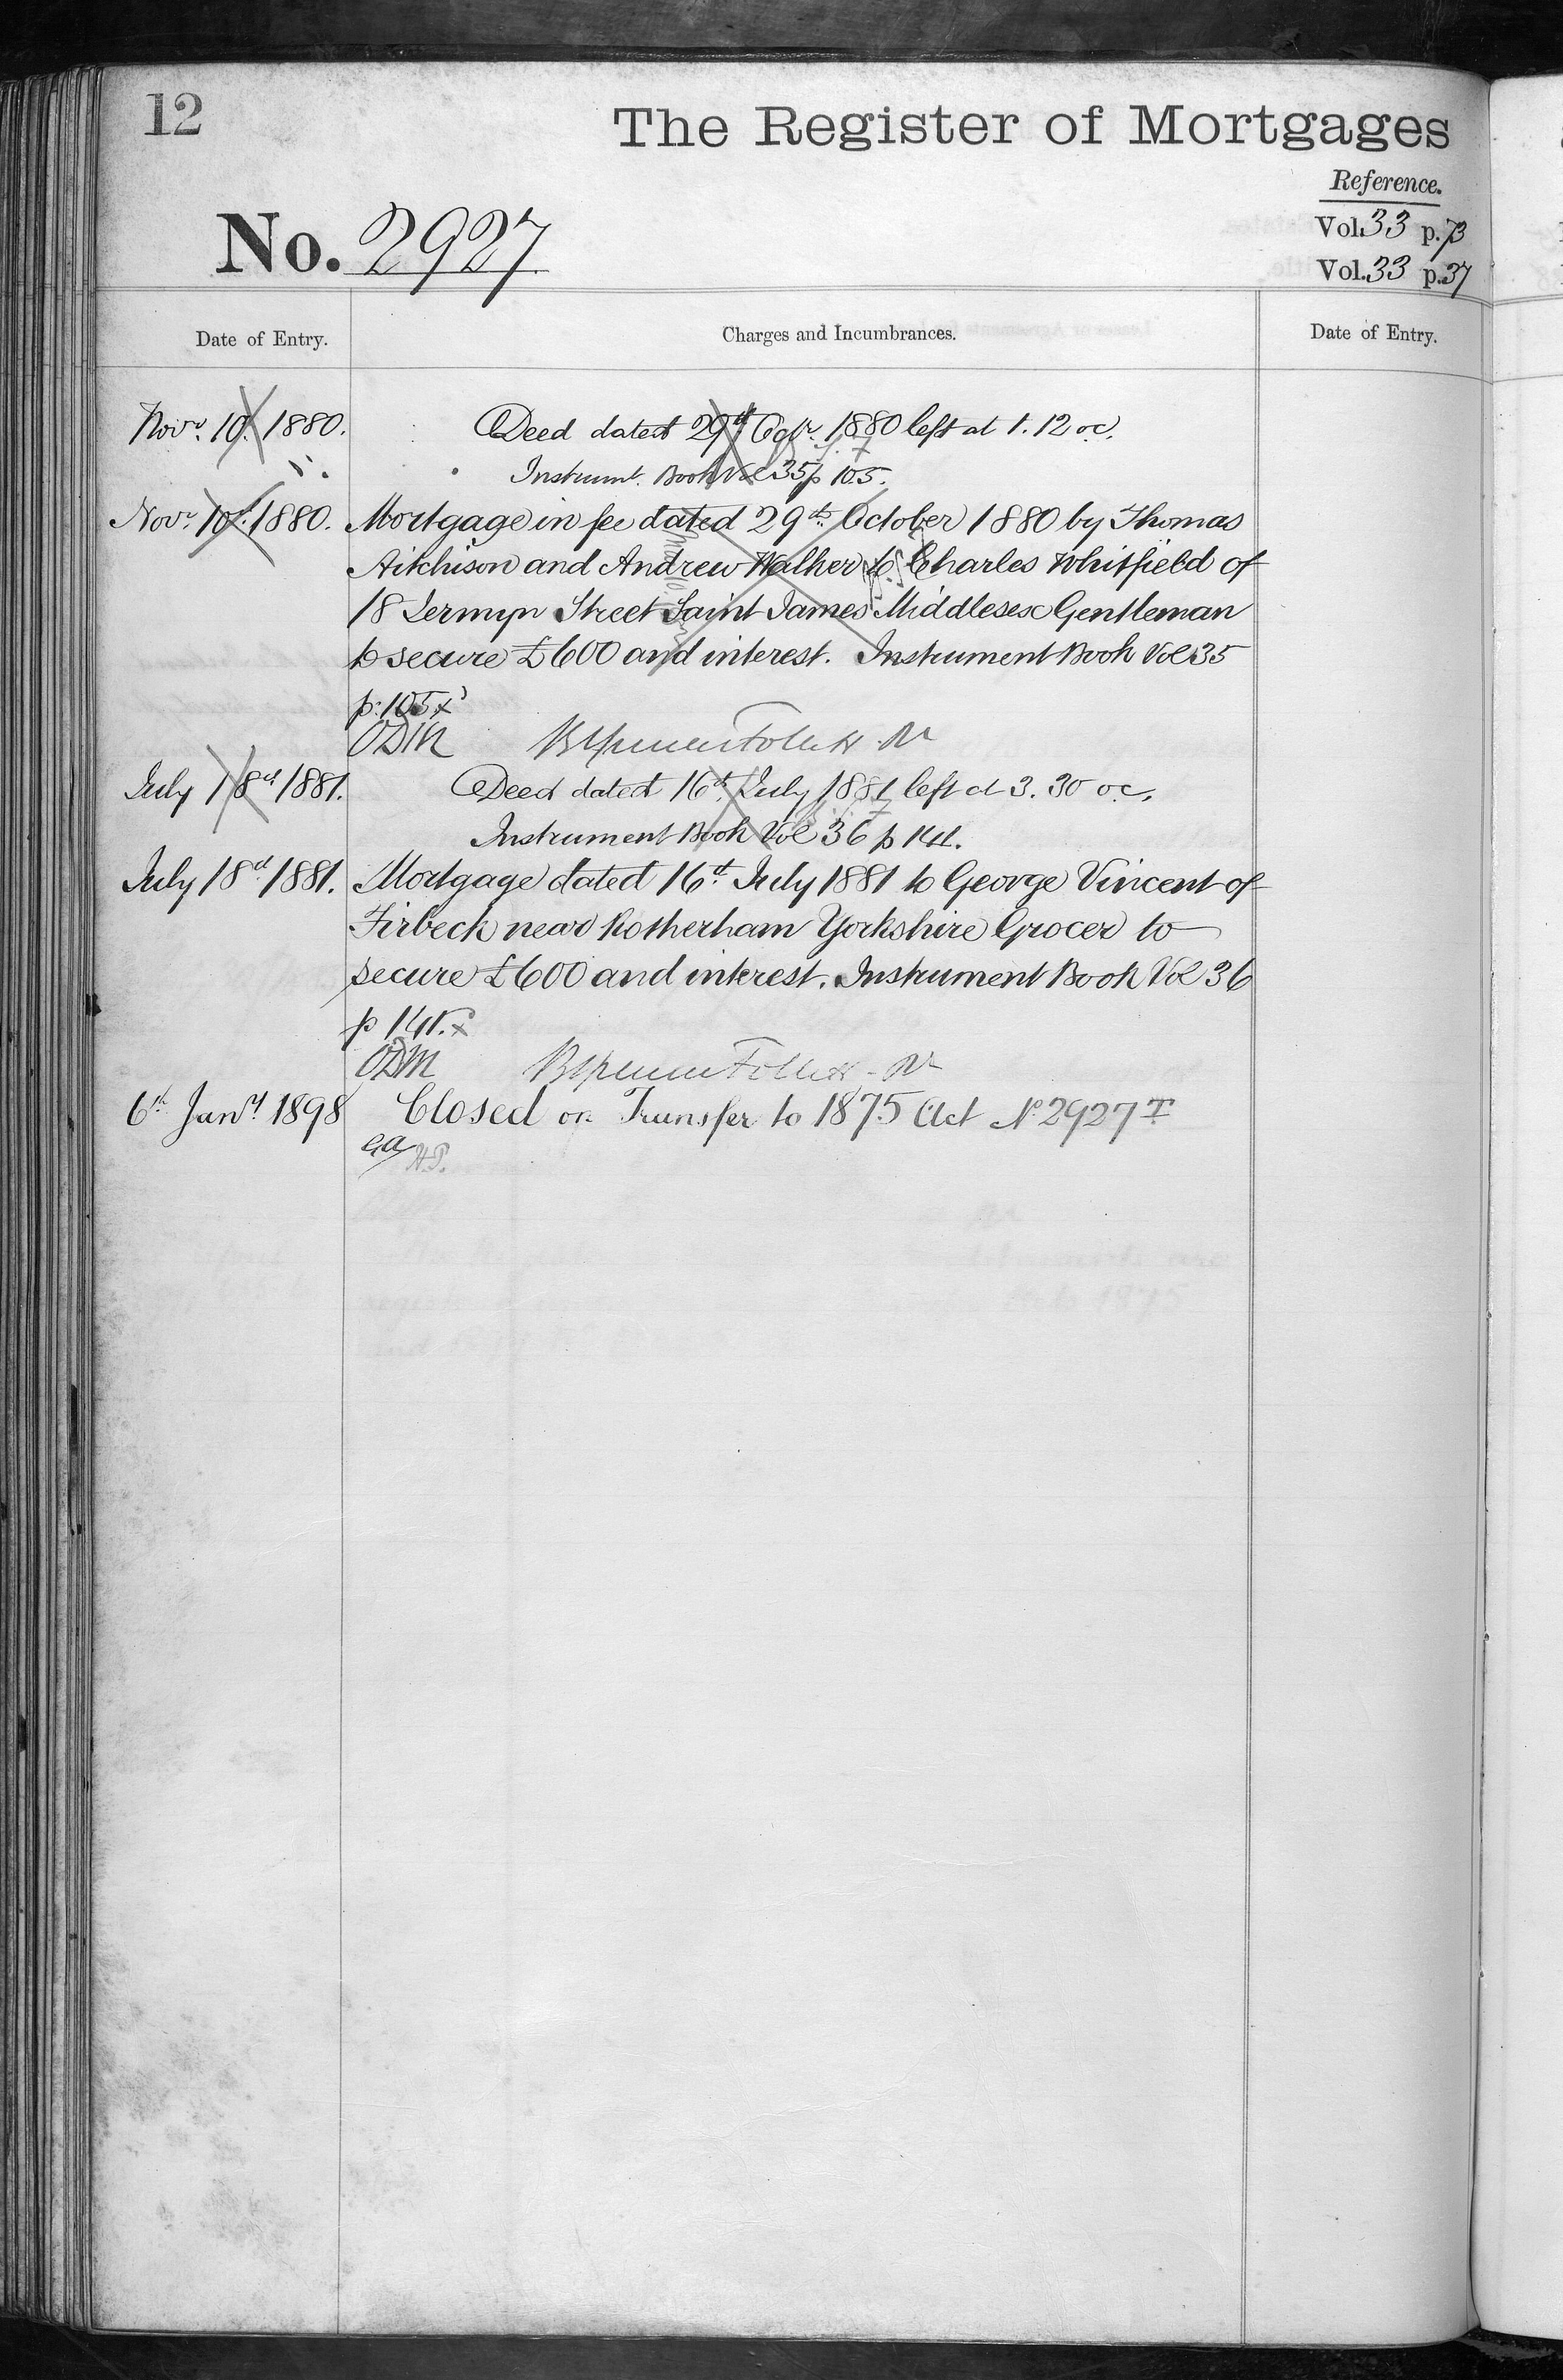 12
The Register of Mortgages
Reference.
No. 2927
Vol. 33 p. 73
Vol. 33 p. 37
Date of Entry.
Charges and Incumbrances.
Date of Entry.
Novr. 10th. 1880.
Deed dated 29th Octr. 1880 left at 1.12 oc.
Instrumt. Book Vol 35 p 105.
Novr. 10th. 1880.
Mortgage in fee dated 29th. October 1880 by Thomas
Aitchison and Andrew Walker to Charles Whitfield of
18 Jermyn Street Saint James Middlesex Gentleman
to secure £600 and interest. Instrument Book Vol 35
p. 105 x
ODM
July 18th 1881.
Deed dated 16th July 1881 left at 3.30 oc.
Instrument Book Vol 36 p 141.
July 18th 1881.
Mortgage dated 16th July 1881 to George Vincent of
Firbeck near Rotherham Yorkshire Grocer to
secure £600 and interest. Instrument Book Vol 36
p 141. x
ODM
6th Jany 1898
Closed on Transfer to 1875 Act No 2927 T
ea
H.P.